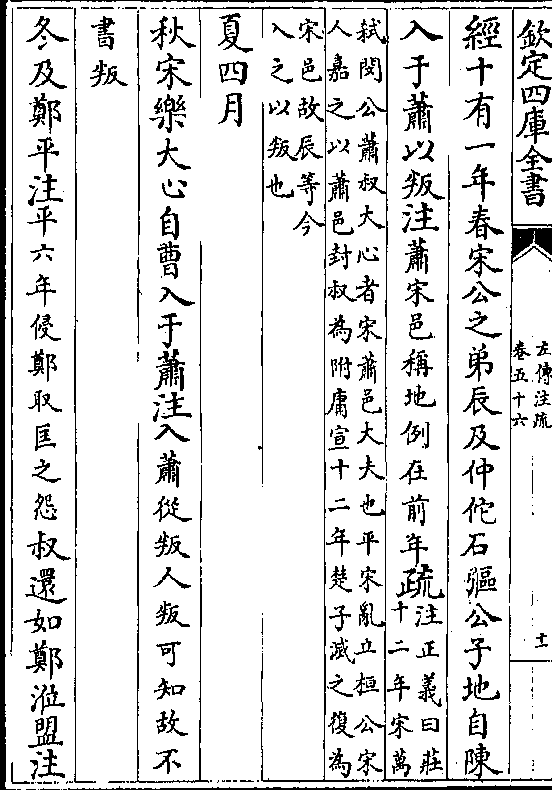 欽定四庫全書
左傳注疏
卷五十六
十一
經十有一年春宋公之弟辰及仲佗石彄公子地自陳
入于蕭以叛注蕭宋邑稱地例在前年疏注正義曰莊
十二年宋萬
弒閔公蕭叔大心者宋蕭邑大夫也平宋亂立桓公宋
人嘉之以蕭邑封叔為附庸宣十二年楚子滅之復為
宋邑故辰等今
入之以叛也
夏四月
秋宋樂大心自曹入于蕭注入蕭從叛人叛可知故不
書叛
冬及鄭平注平六年侵鄭取匡之怨叔還如鄭涖盟注